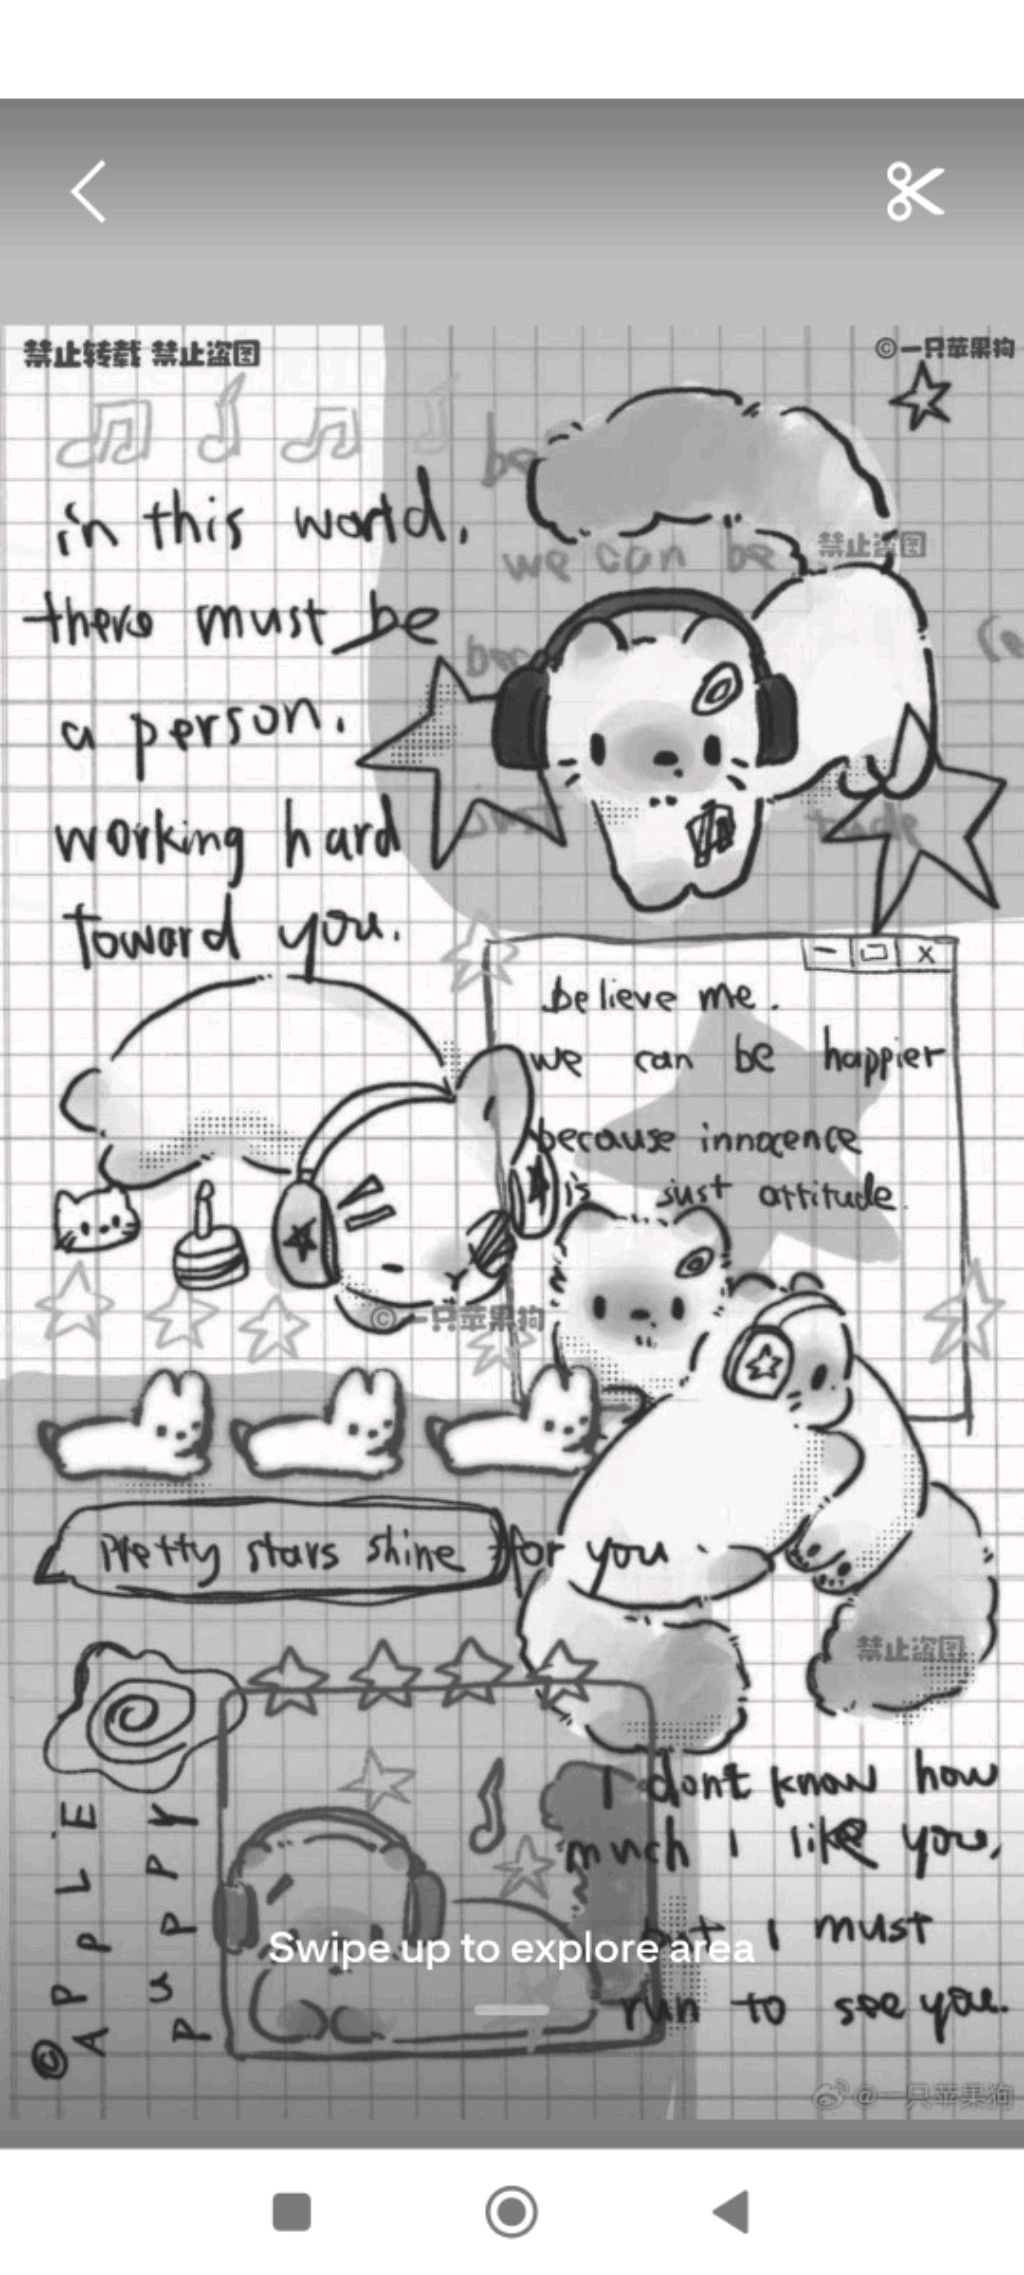 禁止转载 禁止盗图
©一只苹果狗
in this world,
there must be
a person.
working hard
toward you.
be
we can be
禁止盗图
believe me.
we can be happier
because innocence
is just attitude.
©一只苹果狗
Pretty stars shine for you.
禁止盗图
I dont know how
much I like you,
but I must
run to see you.
Swipe up to explore area
© APPLE
PUPPY
@一只苹果狗